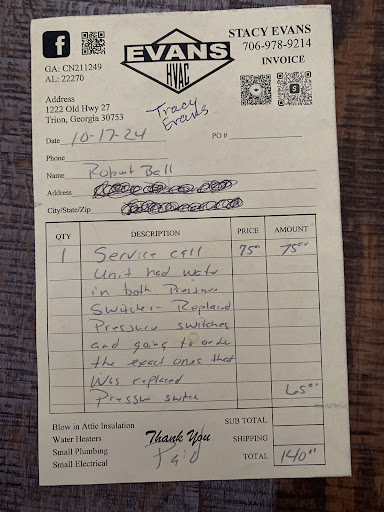 f
EVANS
HVAC
STACY EVANS
706-978-9214
INVOICE
GA: CN211249
AL: 22270
Address
1222 Old Hwy 27
Trion, Georgia 30753
Tracy
Evans
Date 10-17-24 PO #
Phone
Name Robert Ball
Address
City/State/Zip
QTY DESCRIPTION PRICE AMOUNT
1 Service call 75.00 75.00
Unit had water
in both Pressure
Switches - Replaced
Pressure switches
and going to order
the exact ones that
Was replaced
Pressure switch 65.00
Blow in Attic Insulation
Water Heaters
Small Plumbing
Small Electrical
Thank You
Paid
SUB TOTAL
SHIPPING
TOTAL 140.00